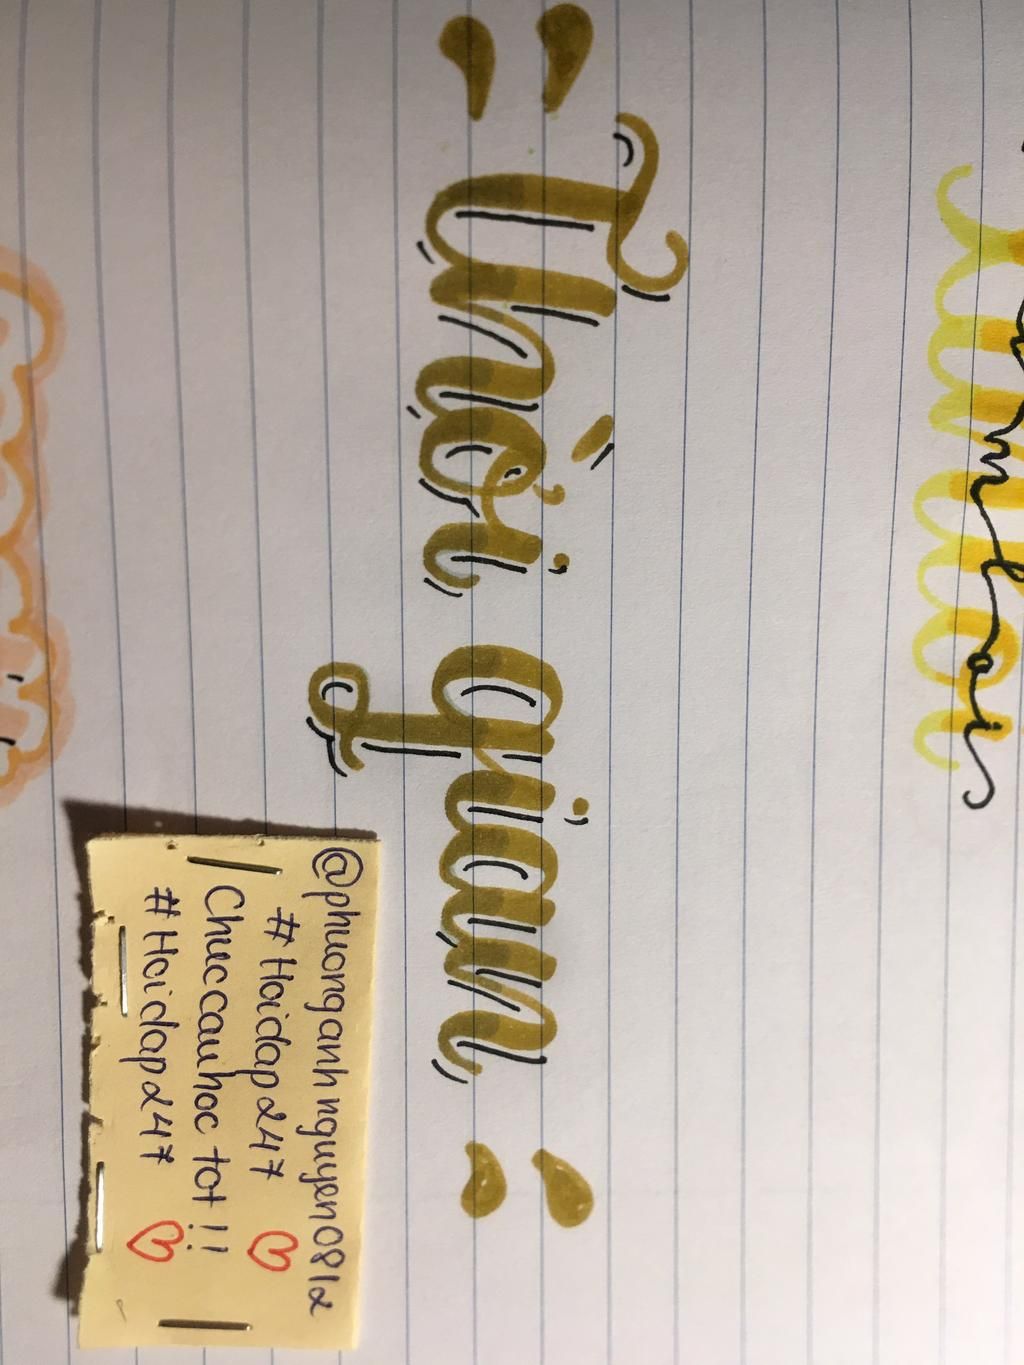 Thời gian
@phuonganhnguyen0812
#Hoidap247 ♡
Chuccauhoc tot !!
#Hoidap247 ♡